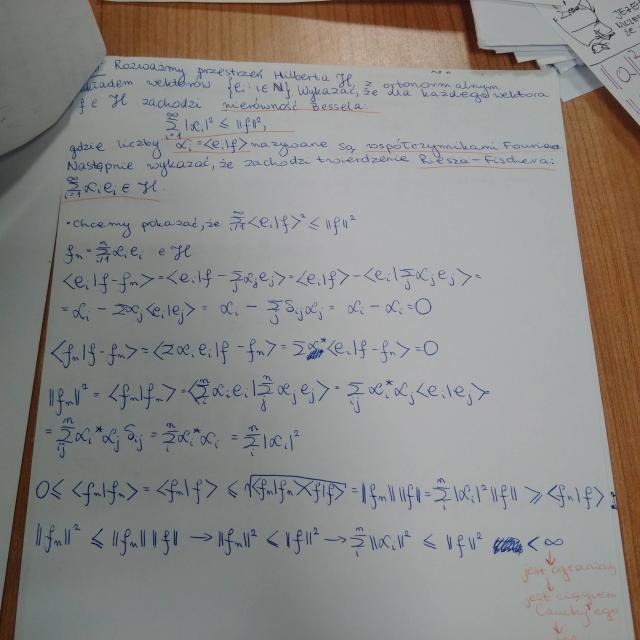 Rozważmy przestrzeń Hilberta H z ortonormalnym
układem wektorów {e_i: i∈N}. Wykazać, że dla każdego wektora
f ∈ H zachodzi nierówność Bessela:
∞∑i=1 |α_i|² ≤ ||f||²,
gdzie liczby α_i=<e_i|f> nazywane są współczynnikami Fouriera
Następnie wykazać, że zachodzi twierdzenie Riesza-Fischera:
∞∑i=1 α_i e_i ∈ H.
• Chcemy pokazać, że ∞∑i=1 <e_i|f>² ≤ ||f||²
f_n = n∑i=1 α_i e_i ∈ H
<e_i|f-f_n> = <e_i|f - ∑j α_j e_j> = <e_i|f> - <e_i|∑j α_j e_j> =
= α_i - ∑α_j <e_i|e_j> = α_i - ∑j δ_ij α_j = α_i - α_i = 0
<f_n|f-f_n> = <∑α_i e_i|f - f_n> = ∑α_i* <e_i|f-f_n> = 0
||f_n||² = <f_n|f_n> = <n∑i α_i e_i|n∑j α_j e_j> = ∑ij α_i* α_j <e_i|e_j>
= n∑ij α_i* α_j δ_ij = n∑i α_i* α_i = n∑i |α_i|²
0 ≤ <f_n|f_n> = <f_n|f> ≤ √<f_n|f_n><f|f> = ||f_n|| ||f|| = n∑i |α_i|² ||f|| ≥ <f_n|f>
||f_n||² ≤ ||f_n|| ||f|| → ||f_n||² ≤ ||f||² → n∑i ||α_i||² ≤ ||f||² < ∞
jest ograniczony
jest ciągiem
Cauchy'ego